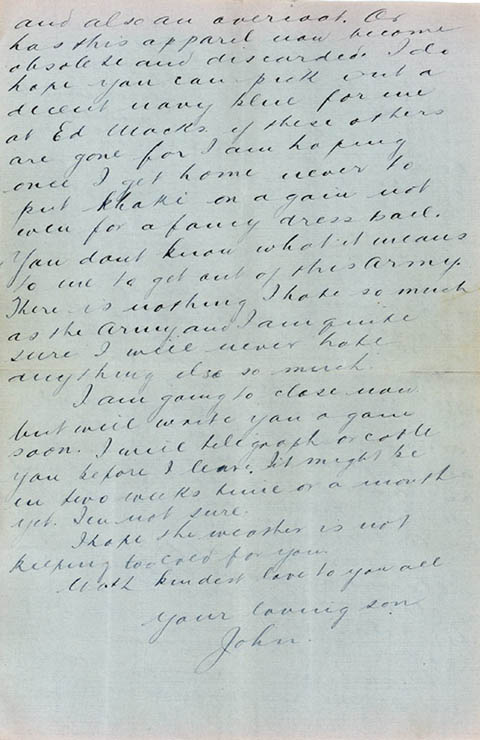 and also an overcoat. Or
has this apparel now become
obsolete and discarded. I do
hope you can pick out a
decent navy blue for me
at Ed Macks if these others
are gone for I am hoping
once I get home never to
put khaki on again not
even for a fancy dress ball.
You dont know what it means
to me to get out of this Army.
There is nothing I hate so much
as the Army and I am quite
sure I will never hate
anything else so much.
I am going to close now
but will write you again
soon. I will telegraph or cable
you before I leave. It might be
in two weeks time or a month
yet. I'm not sure.
I hope the weather is not
keeping too cold for you.
With kindest love to you all
Your loving son
John.